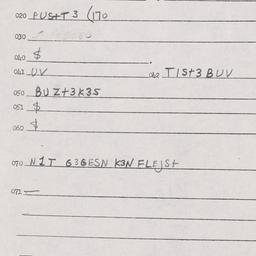 020 PUSTT3 (170
030
040 $
041 UV 042 TIST3BUV
050 BUZT3K35
051 $
060 $
070 N1T G3GESN K3N FLEJST
071 —